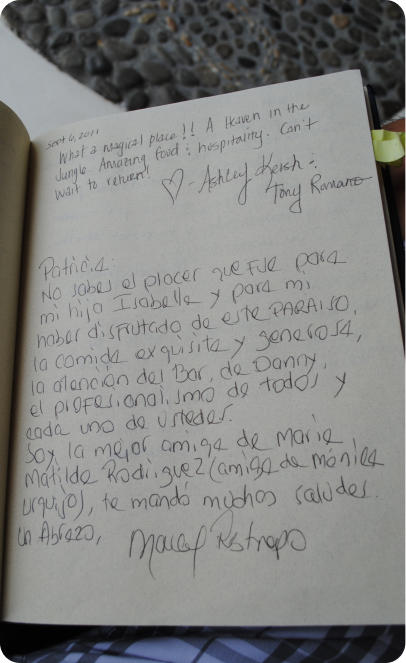 Sept 6, 2011
What a magical place!! A Haven in the
Jungle. Amazing food & hospitality. Can't
wait to return!
♡ - Ashley Kersh &
Tony Romano
Patricia:
No sabes el placer que fue para
mi hija Isabella y para mi
haber disfrutado de este PARAISO,
la comida exquisita y generosa,
la atención del Bar, de Danny,
el profesionalismo de todos y
cada uno de ustedes.
Soy la mejor amiga de Maria
Matilde Rodriguez (amiga de mónica
urquijo), te mandó muchos saludes.
un Abrazo,
Restrepo